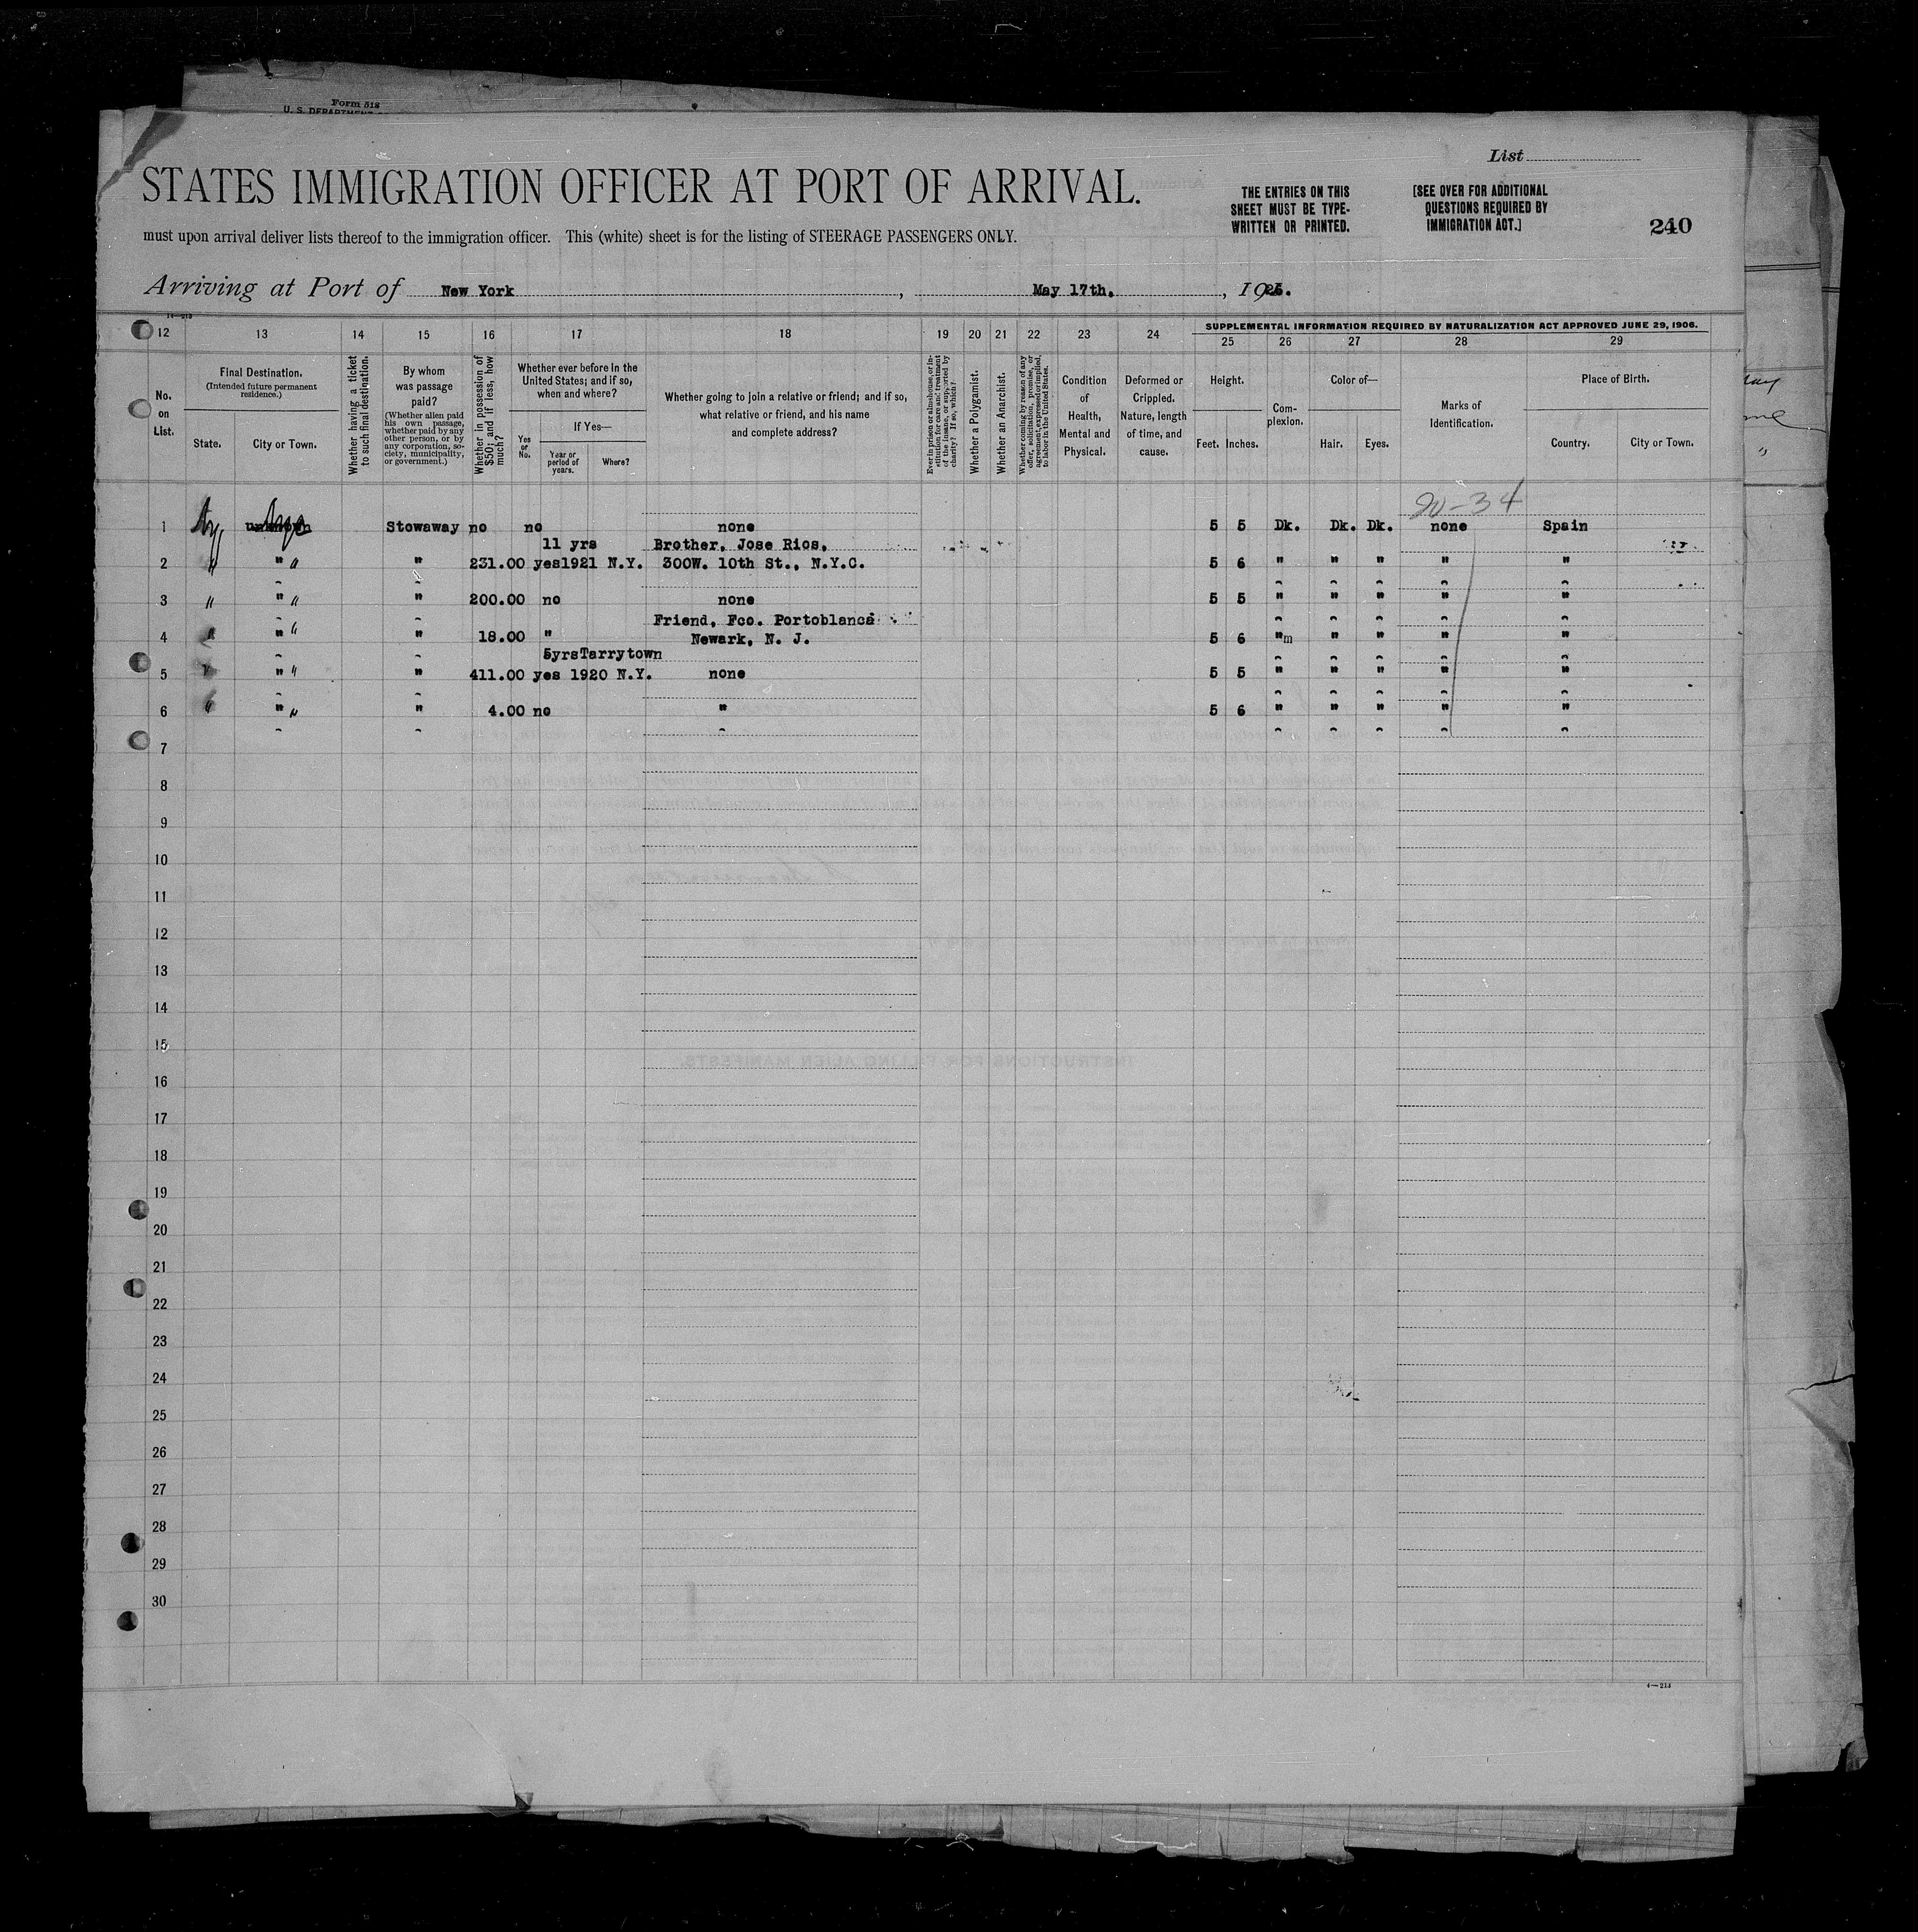 Form 512
U. S. DEPARTMENT
List
STATES IMMIGRATION OFFICER AT PORT OF ARRIVAL.
THE ENTRIES ON THIS SHEET MUST BE TYPE-WRITTEN OR PRINTED.
[SEE OVER FOR ADDITIONAL QUESTIONS REQUIRED BY IMMIGRATION ACT.]
240
must upon arrival deliver lists thereof to the immigration officer. This (white) sheet is for the listing of STEERAGE PASSENGERS ONLY.
Arriving at Port of New York, May 17th, 192
12 13 14 15 16 17 18 19 20 21 22 23 24 SUPPLEMENTAL INFORMATION REQUIRED BY NATURALIZATION ACT APPROVED JUNE 29, 1906.
25 26 27 28 29
No. on List.
Final Destination. (Intended future permanent residence.)
State. City or Town.
Whether having a ticket to such final destination.
By whom was passage paid? (Whether alien paid his own passage, whether paid by any other person, or by any corporation, society, municipality, or government.)
Whether in possession of $50, and if less, how much?
Whether ever before in the United States; and if so, when and where?
Yes or No. If Yes— Year or period of years. Where?
Whether going to join a relative or friend; and if so, what relative or friend, and his name and complete address?
Ever in prison or almshouse, or institution for care and treatment of the insane, or supported by charity? If so, which?
Whether a Polygamist.
Whether an Anarchist.
Whether coming by reason of any offer, solicitation, promise, or agreement, expressed or implied, to labor in the United States.
Condition of Health, Mental and Physical.
Deformed or Crippled. Nature, length of time, and cause.
Height. Feet. Inches.
Complexion.
Color of— Hair. Eyes.
Marks of Identification.
Place of Birth. Country. City or Town.
20-34
1 Arg unknown Arge Stowaway no no none 5 5 Dk. Dk. Dk. none Spain
11 yrs Brother, Jose Rios,
2 " " " " 231.00 yes 1921 N.Y. 300W. 10th St., N.Y.C. 5 6 " " " " "
3 " " " " 200.00 no none 5 5 " " " " "
Friend, Fco. Portoblanca
4 " " " " 18.00 " Newark, N. J. 5 6 "m " " " "
5yrs Tarrytown
5 " " " " 411.00 yes 1920 N.Y. none 5 5 " " " " "
6 " " " " 4.00 no " 5 6 " " " " "
7
8
9
10
11
12
13
14
15
16
17
18
19
20
21
22
23
24
25
26
27
28
29
30
INSTRUCTIONS FOR FILLING ALIEN MANIFESTS.